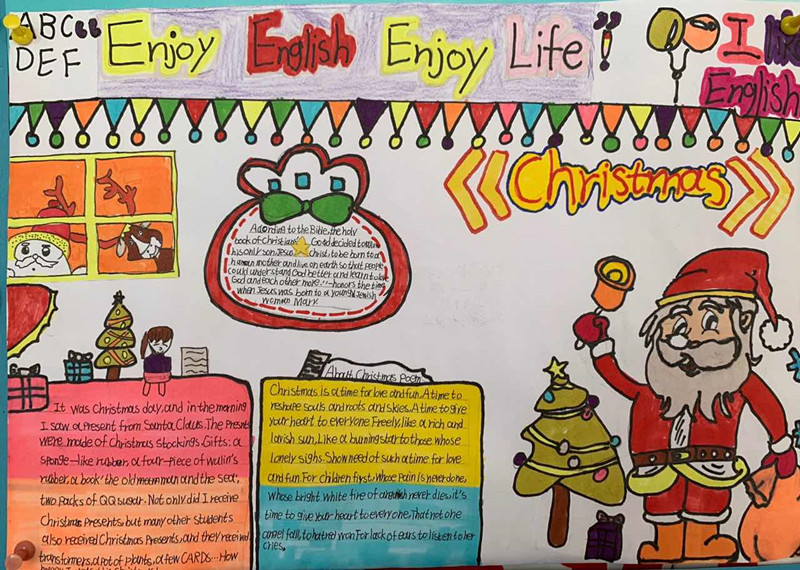 ABC
DEF
Enjoy English Enjoy Life
I like
English
《Christmas》
According to the Bible, the holy
book of Christians God decided to
his only son Jesus Christ to be born to a
human mother and live on earth so that people
could understand God better and learn to love
God and each other more." -honors the time
when Jesus was born to a young Jewish
woman Mark
About Christmas Poem
It was Christmas day, and in the morning
I saw a present from Santa Claus. The Presents
were made of Christmas Stockings. Gifts: a
sponge-like rubber, a four-piece of wulin's
rubber, a book the old man and the sea,
two packs of QQ sugar. Not only did I receive
Christmas Presents, but many other students
also received Christmas Presents, and they received
transformers, a pot of plants, a few CARDS... How
Christmas is a time for love and fun. A time to
reshape souls and roots and skies. A time to give
your heart to everyone Freely, like a rich and
lavish sun, Like a burning star to those whose
lonely sighs. Show need of such a time for love
and fun. For children first, Whose Pain is never done,
whose bright white fire of never dies, it's
time to give your heart to everyone. That not one
angel fall, to hatred won For lack of ears to listen to her
cries.